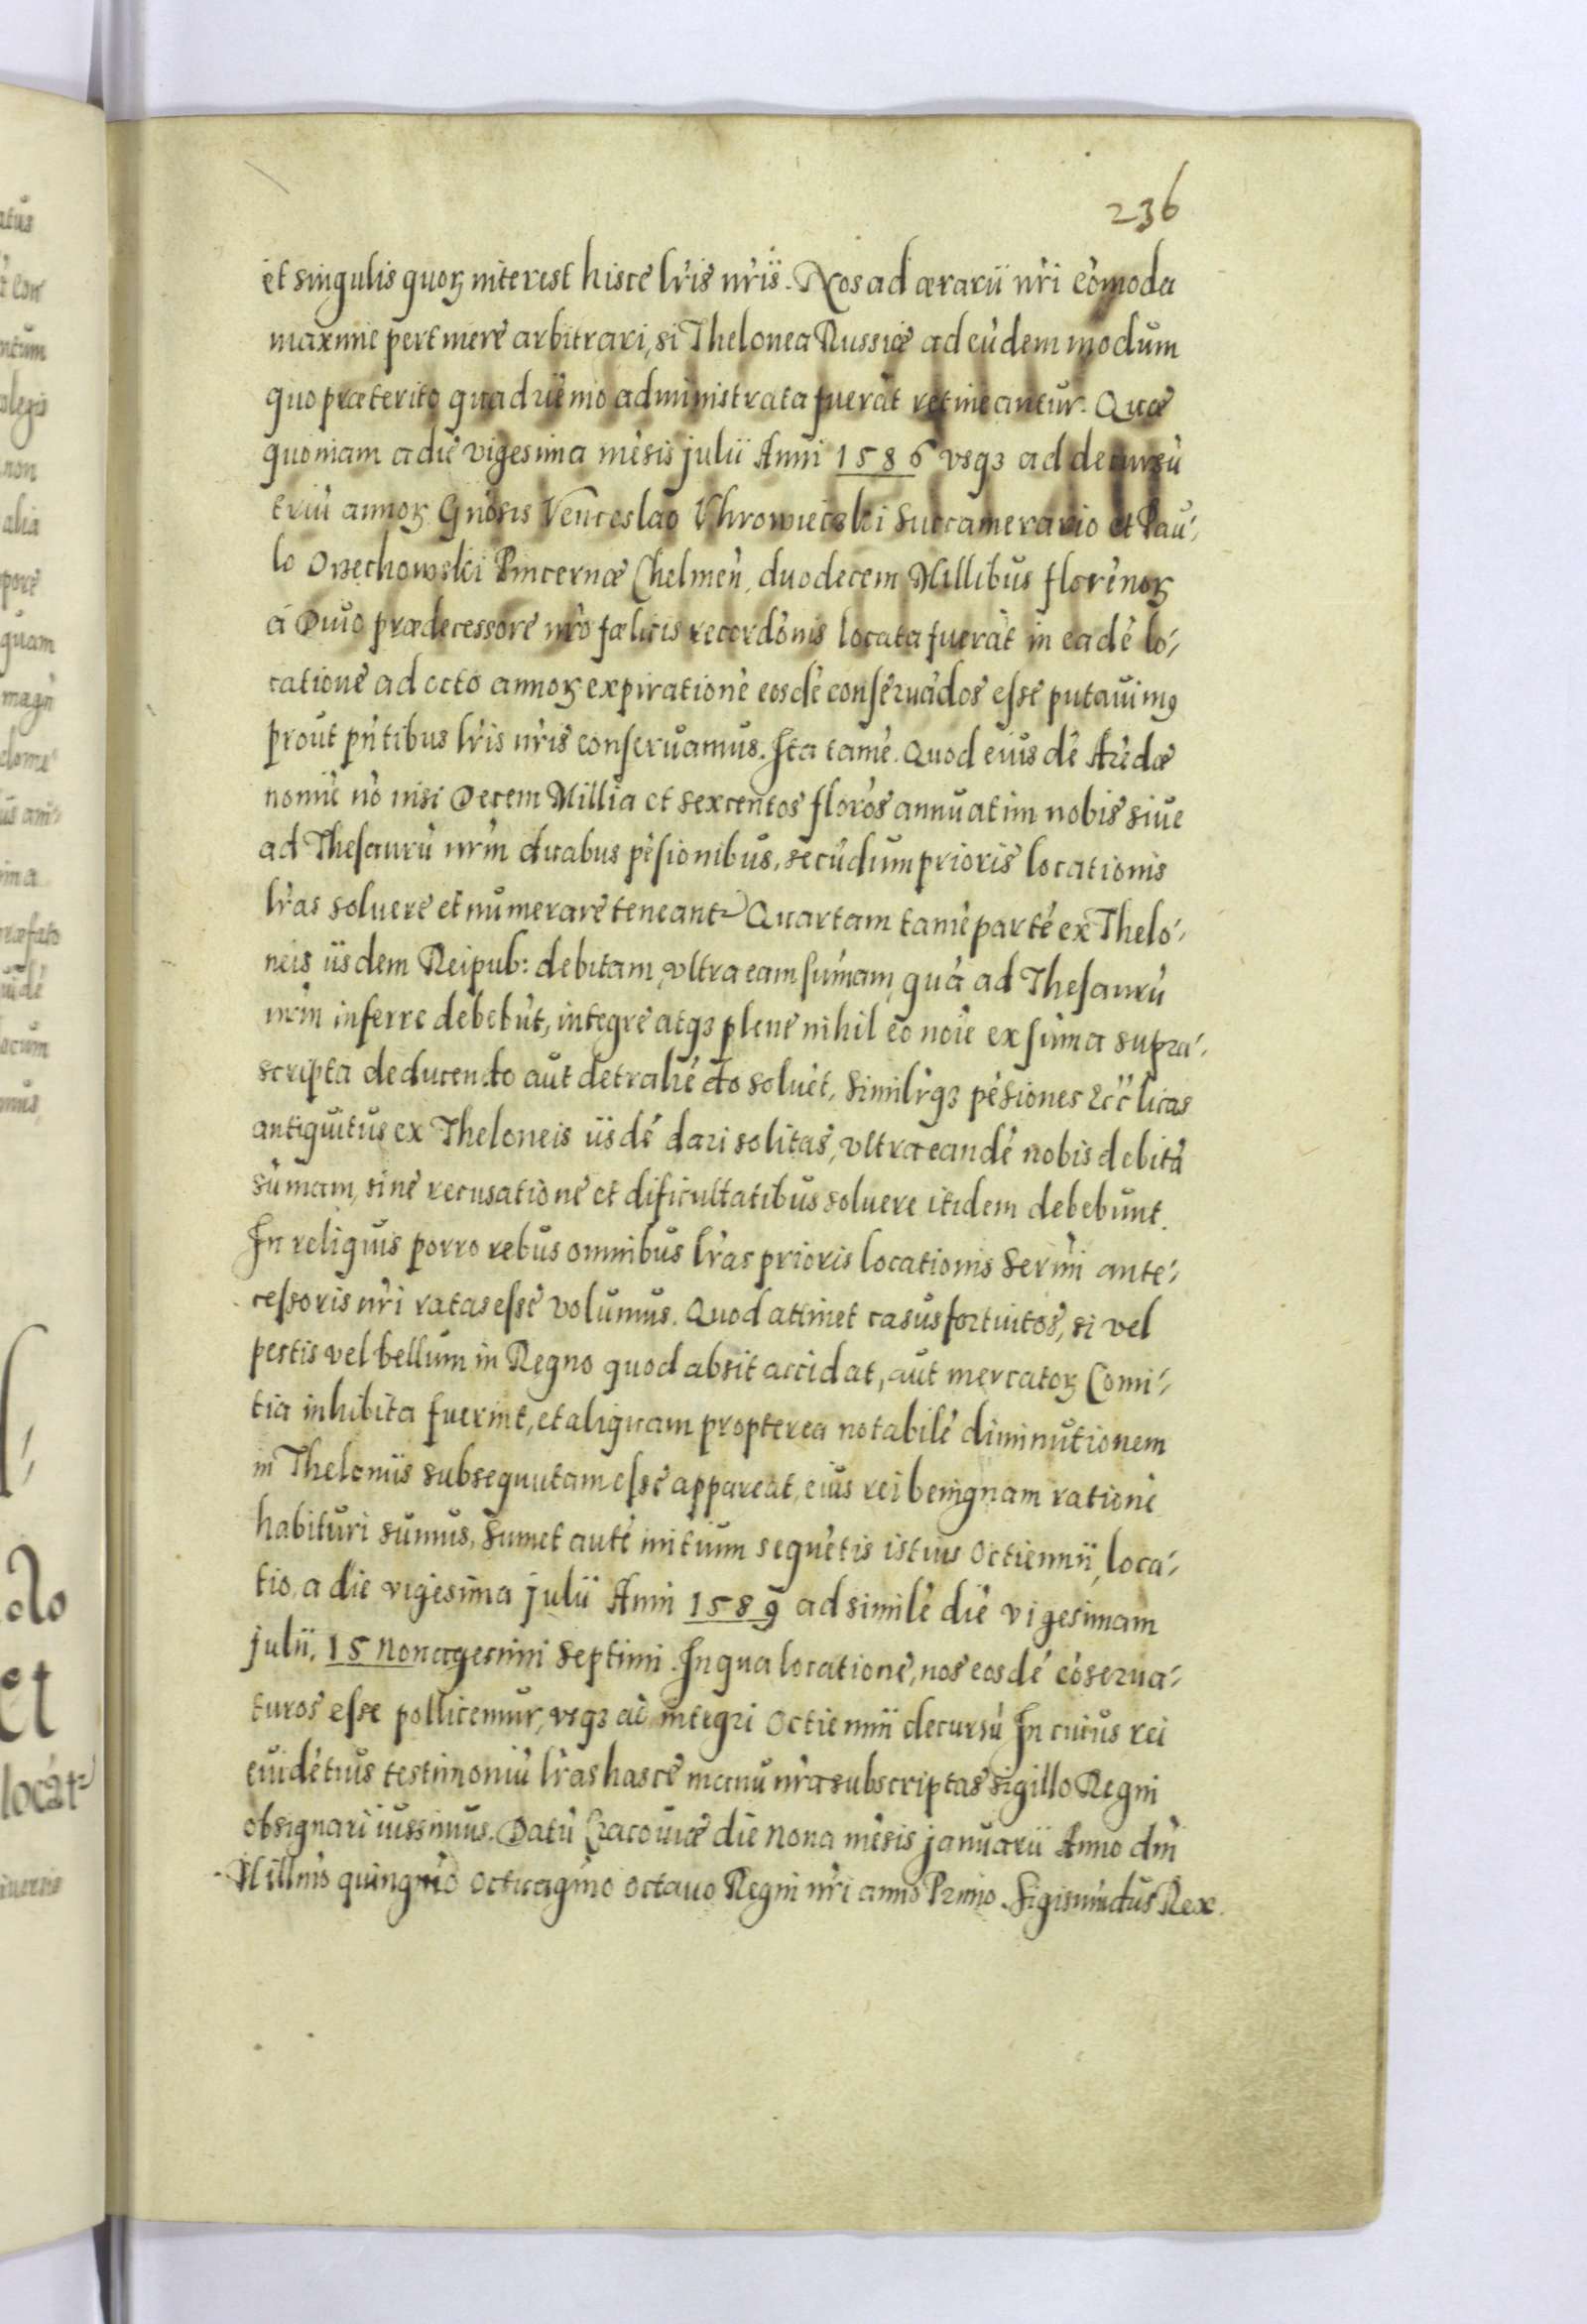 236
et singulis quoꝝ interest hisce lr̃is nr̃is. Nos ad ærarii nr̃i cõmoda
maxime pertinere arbitrari, si Thelonea Russiæ ad eũdem modum
quo præterito quadriẽnio administrata fuerãt retineantur. Quæ
quoniam a die vigesima mẽsis julii Anni 1586 vsqꝫ ad decursũ
triũ annoꝝ Gnõsis Venceslao Vhrowiecski Succamerario et Pau-
lo Orzechowski Pincernæ Chelmeñ. duodecem Millibus florẽnoꝝ
á Diuo prædecessore nr̃o fælicis recordõnis locata fuerãt in eadẽ lo-
catione ad octo annoꝝ expirationẽ eosdẽ conseruãdos esse putauimꝰ
prout pñtibus lr̃is nr̃is conseruamus. Ita tamẽ. Quod eiusdẽ Arẽdæ
nomiẽ nõ nisi Decem Millia et sexcentos florõs annuatim nobis siue
ad Thesaurũ nr̃m duabus pẽsionibus, secũdum prioris locationis
lr̃as soluere et numerare teneantr Quartam tamẽ partẽ ex Thelo-
neis iisdem Reipub: debitam, vltra eam sum̃am, quã ad Thesaurũ
nr̃m inferre debebũt, integre atqꝫ plene nihil eo noĩe ex sum̃a supra-
scripta deducendo aut detrahẽdo soluẽt, similr̃qꝫ pẽsiones Ecc̃licas
antiquitus ex Theloneis iisdẽ dari solitas, vltra eandẽ nobis debitã
sum̃am, sine recusatione et dificultatibus soluere itidem debebunt.
In reliquis porro rebus omnibus lr̃as prioris locationis Serm̃i ante-
cessoris nr̃i ratas esse volumus. Quod attinet casus fortuitos, si vel
pestis vel bellum in Regno quod absit accidat, aut mercatoꝝ Comi-
tia inhibita fuerint, et aliquam propterea notabilẽ diminutionem
in Theloniis subsequutam esse appareat, eius rei benignam rationẽ
habituri sumus, Sumet autẽ initium sequẽtis istius Octiennii, loca-
tio, a die vigesima julii Anni 1589 ad similẽ diẽ vigesimam
julii, 15 Nonagesimi Septimi. In qua locatione, nos eosdẽ cõserua-
turos esse pollicemur, vsqꝫ ad integri Octiennii decursũ In cuius rei
euidẽtius testimoniũ lr̃as hasce manu nr̃a subscriptas sigillo Regni
obsignari iussimus. Datũ Cracouiæ die Nona mẽsis januarii Anno dñi
Millm̃o quingm̃o Octuagm̃o octauo Regni nr̃i anno Primo. Sigismũdus Rex.